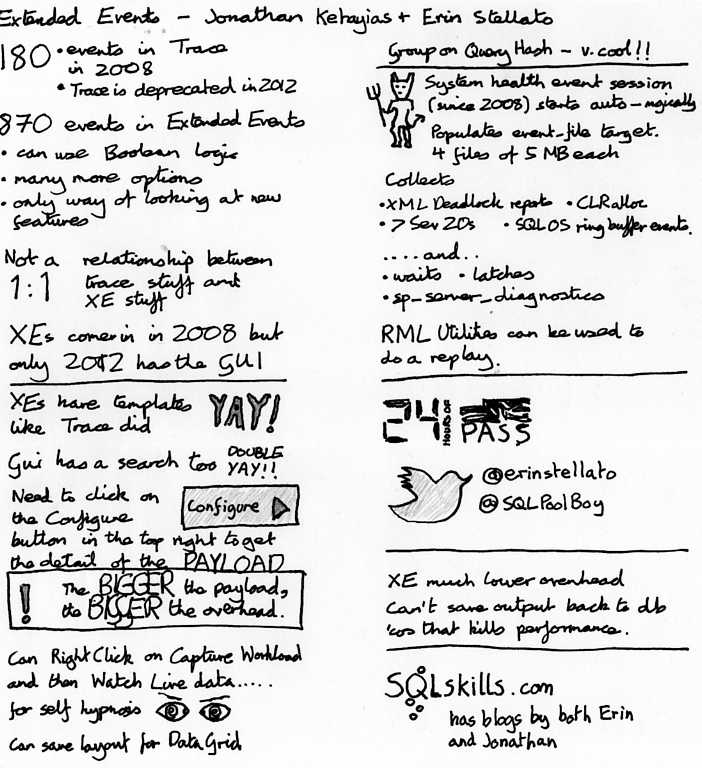 Extended Events – Jonathan Kehayias + Erin Stellato
180 • events in Trace
in 2008
• Trace is deprecated in 2012
870 events in Extended Events
• can use Boolean logic
• many more options
• only way of looking at new
features
Not a 1:1 relationship between
trace stuff and
XE stuff
XEs come in in 2008 but
only 2012 has the GUI
XEs have templates
like Trace did YAY!
Gui has a search too DOUBLE
YAY!!
Need to click on
the Configure
Configure
button in the top right to get
the detail of the PAYLOAD
! The BIGGER the payload,
the BIGGER the overhead.
Can Right Click on Capture Workload
and then Watch Live data.....
for self hypnosis
Can save layout for Data Grid
Group on Query Hash – v. cool!!
System health event session
(since 2008) starts auto-magically
Populates event_file target.
4 files of 5 MB each
Collects
• XML Deadlock reports • CLR alloc
• > Sev 20s • SQLOS ring buffer events.
....and..
• waits • latches
• sp_server_diagnostics
RML Utilites can be used to
do a replay.
24 HOURS OF PASS
@erinstellato
@SQLPoolBoy
XE much lower overhead
Can't save output back to db
'cos that kills performance.
SQLskills.com
has blogs by both Erin
and Jonathan